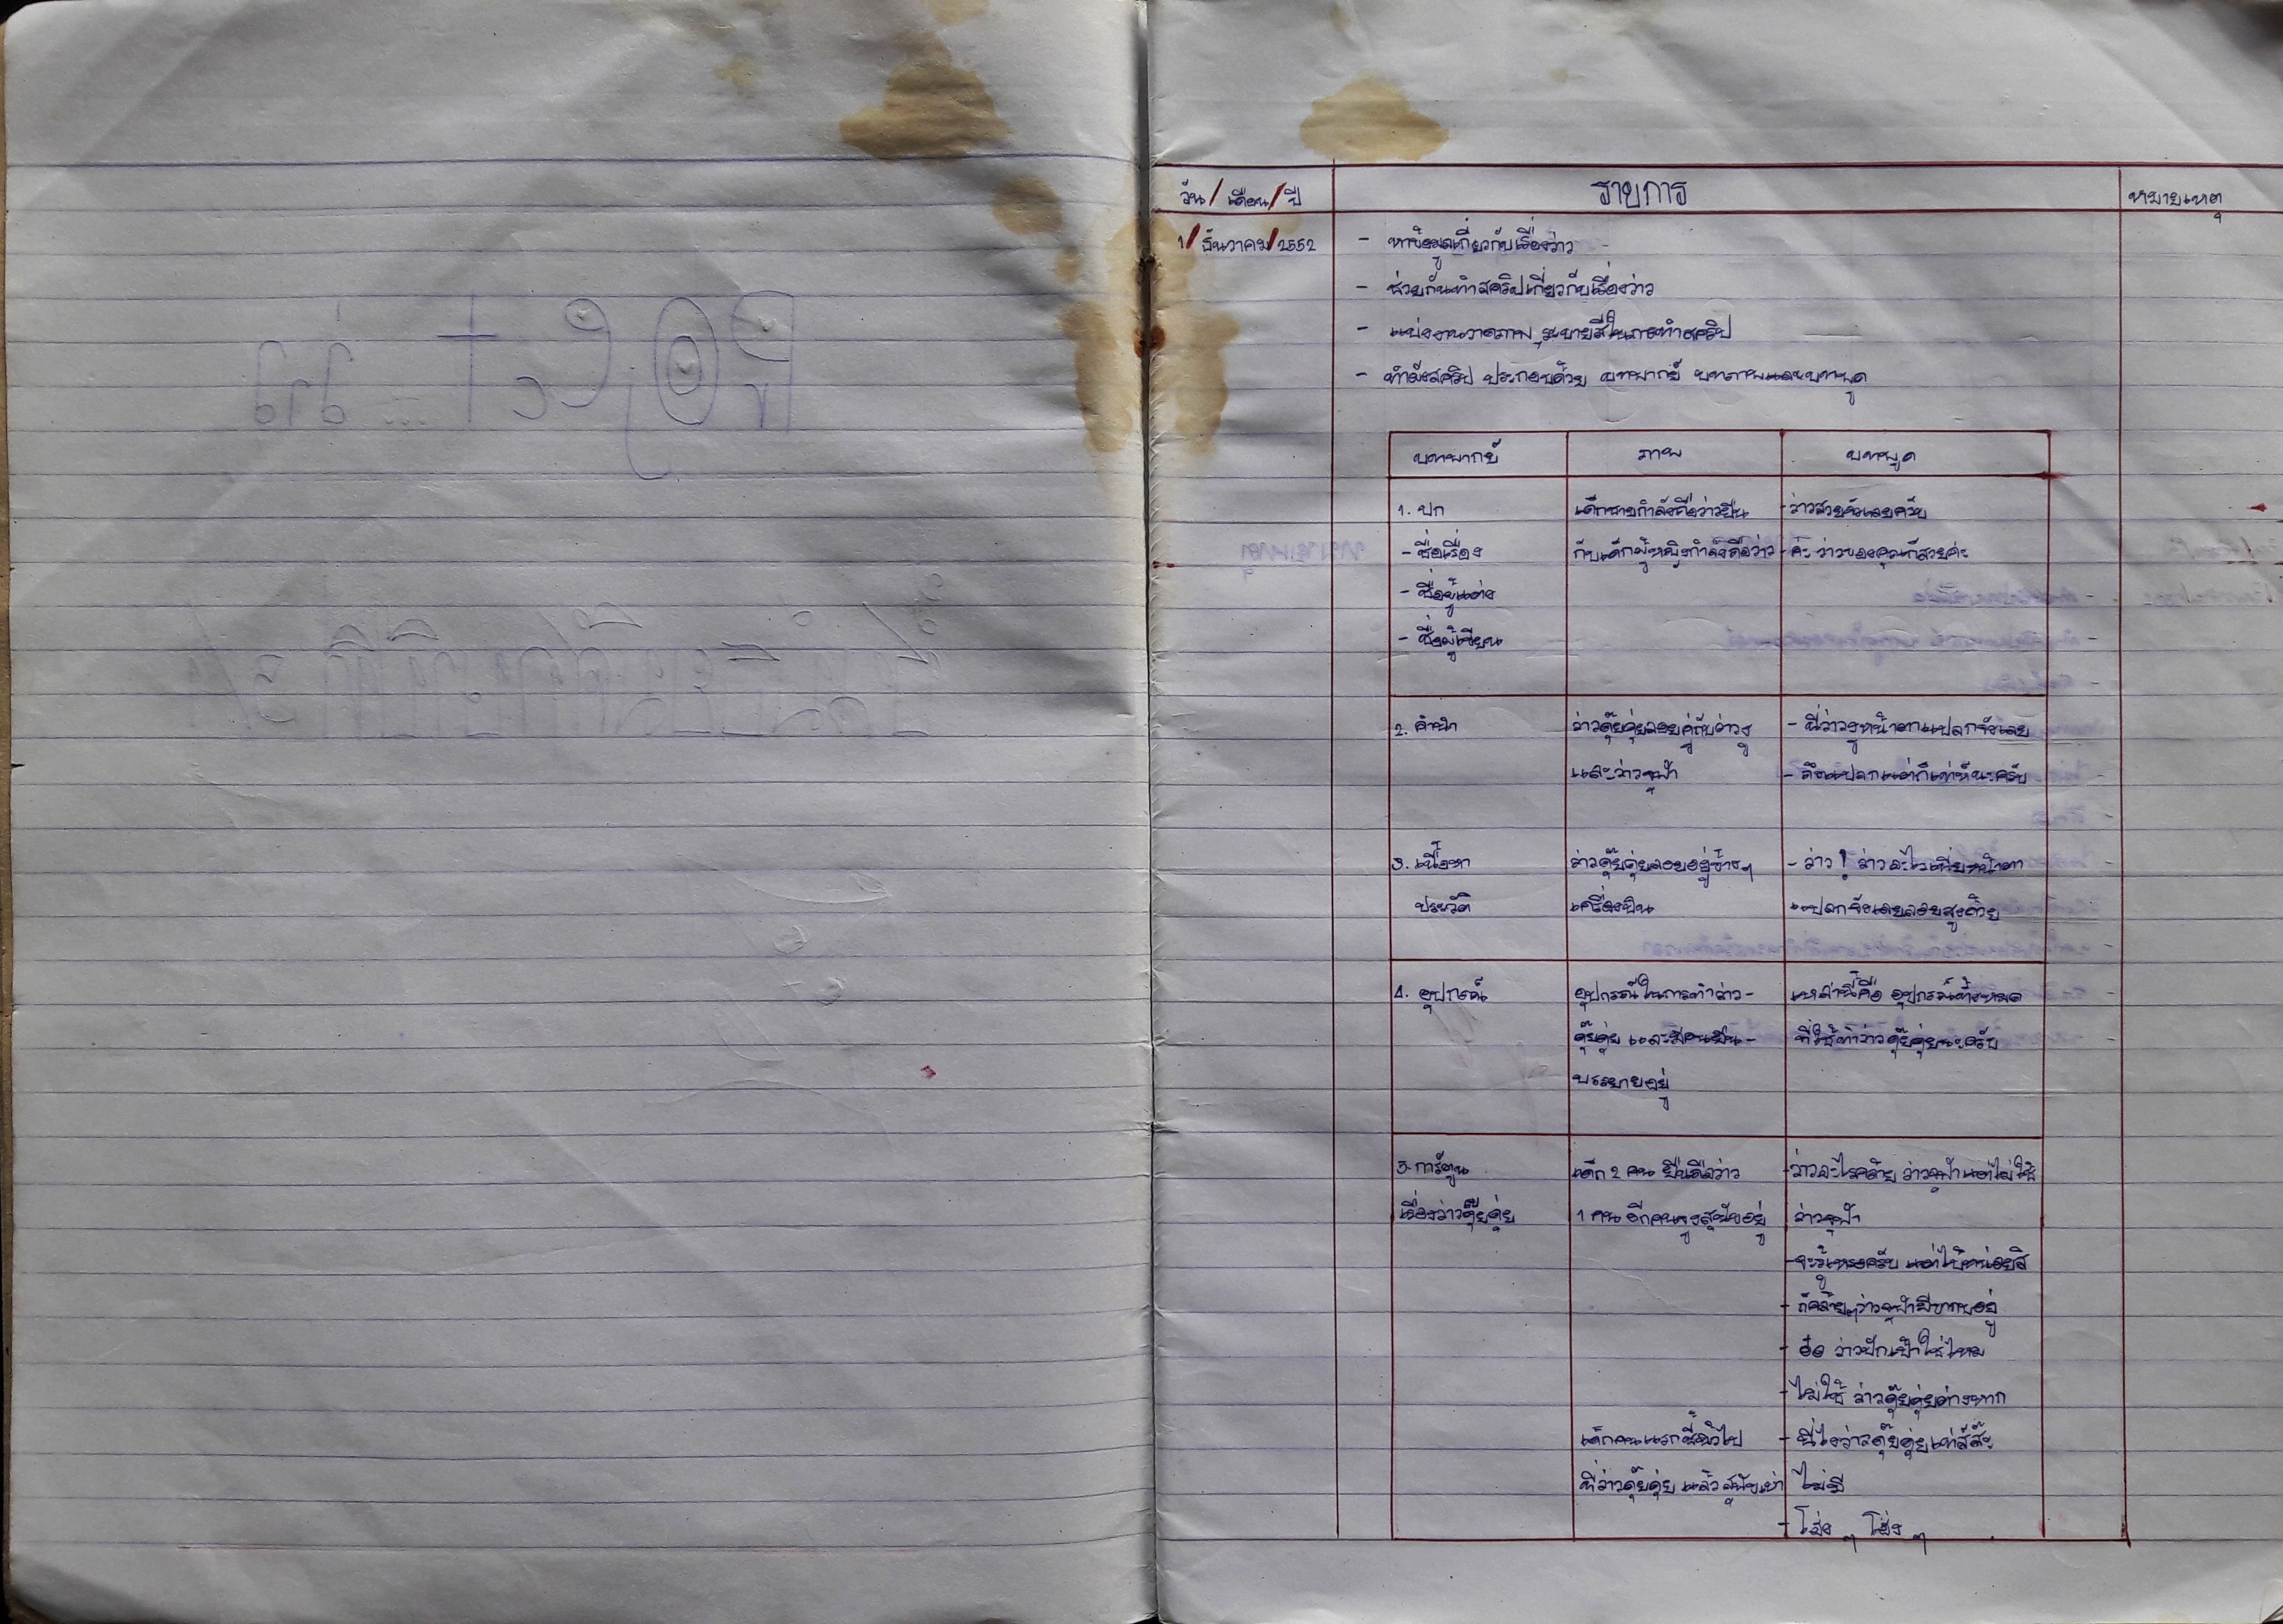 วัน/ เดือน/ ปี รายการ หมายเหตุ
1/ ธันวาคม/ 2552 - หาข้อมูลเกี่ยวกับเรื่องว่าว
- ช่วยกันทำสคริปเกี่ยวกับเรื่องว่าว
- แบ่งงานวาดภาพ ระบายสีในการทำสคริป
- ทำผังสคริป ประกอบด้วย บทพากย์ บทภาพและบทพูด
บทพากย์ ภาพ บทพูด
1. ปก เด็กชายกำลังถือว่าวยืน - ว่าวสวยจังเลยครับ
- ชื่อเรื่อง กับเด็กผู้หญิงกำลังถือว่าว - ค่ะ ว่าวของคุณก็สวยค่ะ
- ชื่อผู้แต่ง
- ชื่อผู้เขียน
2. คำนำ ว่าวตุ๊ยตุ่ยลอยคู่กับว่าวงู - นี่ว่าวงูหน้าตาแปลกจังเลย
และว่าวจุฬา - ถึงแปลกแต่ก็เท่ห์นะครับ
3. เนื้อหา ว่าวตุ๊ยตุ่ยลอยอยู่ข้างๆ - ว่าว! ว่าวอะไรเนี่ยหน้าตา
ประวัติ เครื่องบิน แปลกจังเลยลอยสูงด้วย
4. อุปกรณ์ อุปกรณ์ในการทำว่าว- เหล่านี้คือ อุปกรณ์ทั้งหมด
ตุ๊ยตุ่ย และมีคนยืน- ที่ใช้ทำว่าวตุ๊ยตุ่ยนะครับ
บรรยายอยู่
5. การ์ตูน เด็ก 2 คน ยืนถือว่าว - ว่าวอะไรคล้าย ว่าวจุฬาแต่ไม่ใช้
เรื่องว่าวตุ๊ยตุ่ย 1 คน อีกคนจูงสุนัขอยู่ ว่าวจุฬา
- จะรู้เหรอครับ
- ก็คล้ายๆว่าวจุฬามี อยู่
- อ๋อ ว่าวปักเป้าใช่ไหม
- ไม่ใช้ ว่าวตุ๊ยตุ่ยต่างหาก
เด็กคนแรกชี้นิ้วไป - นี่ไงว่าวตุ๊ยตุ่ย
ที่ว่าวตุ๊ยตุ่ย แล้วสุนัขเห่า ไม่มี
- โฮ่ง ๆ โฮ่ง ๆ